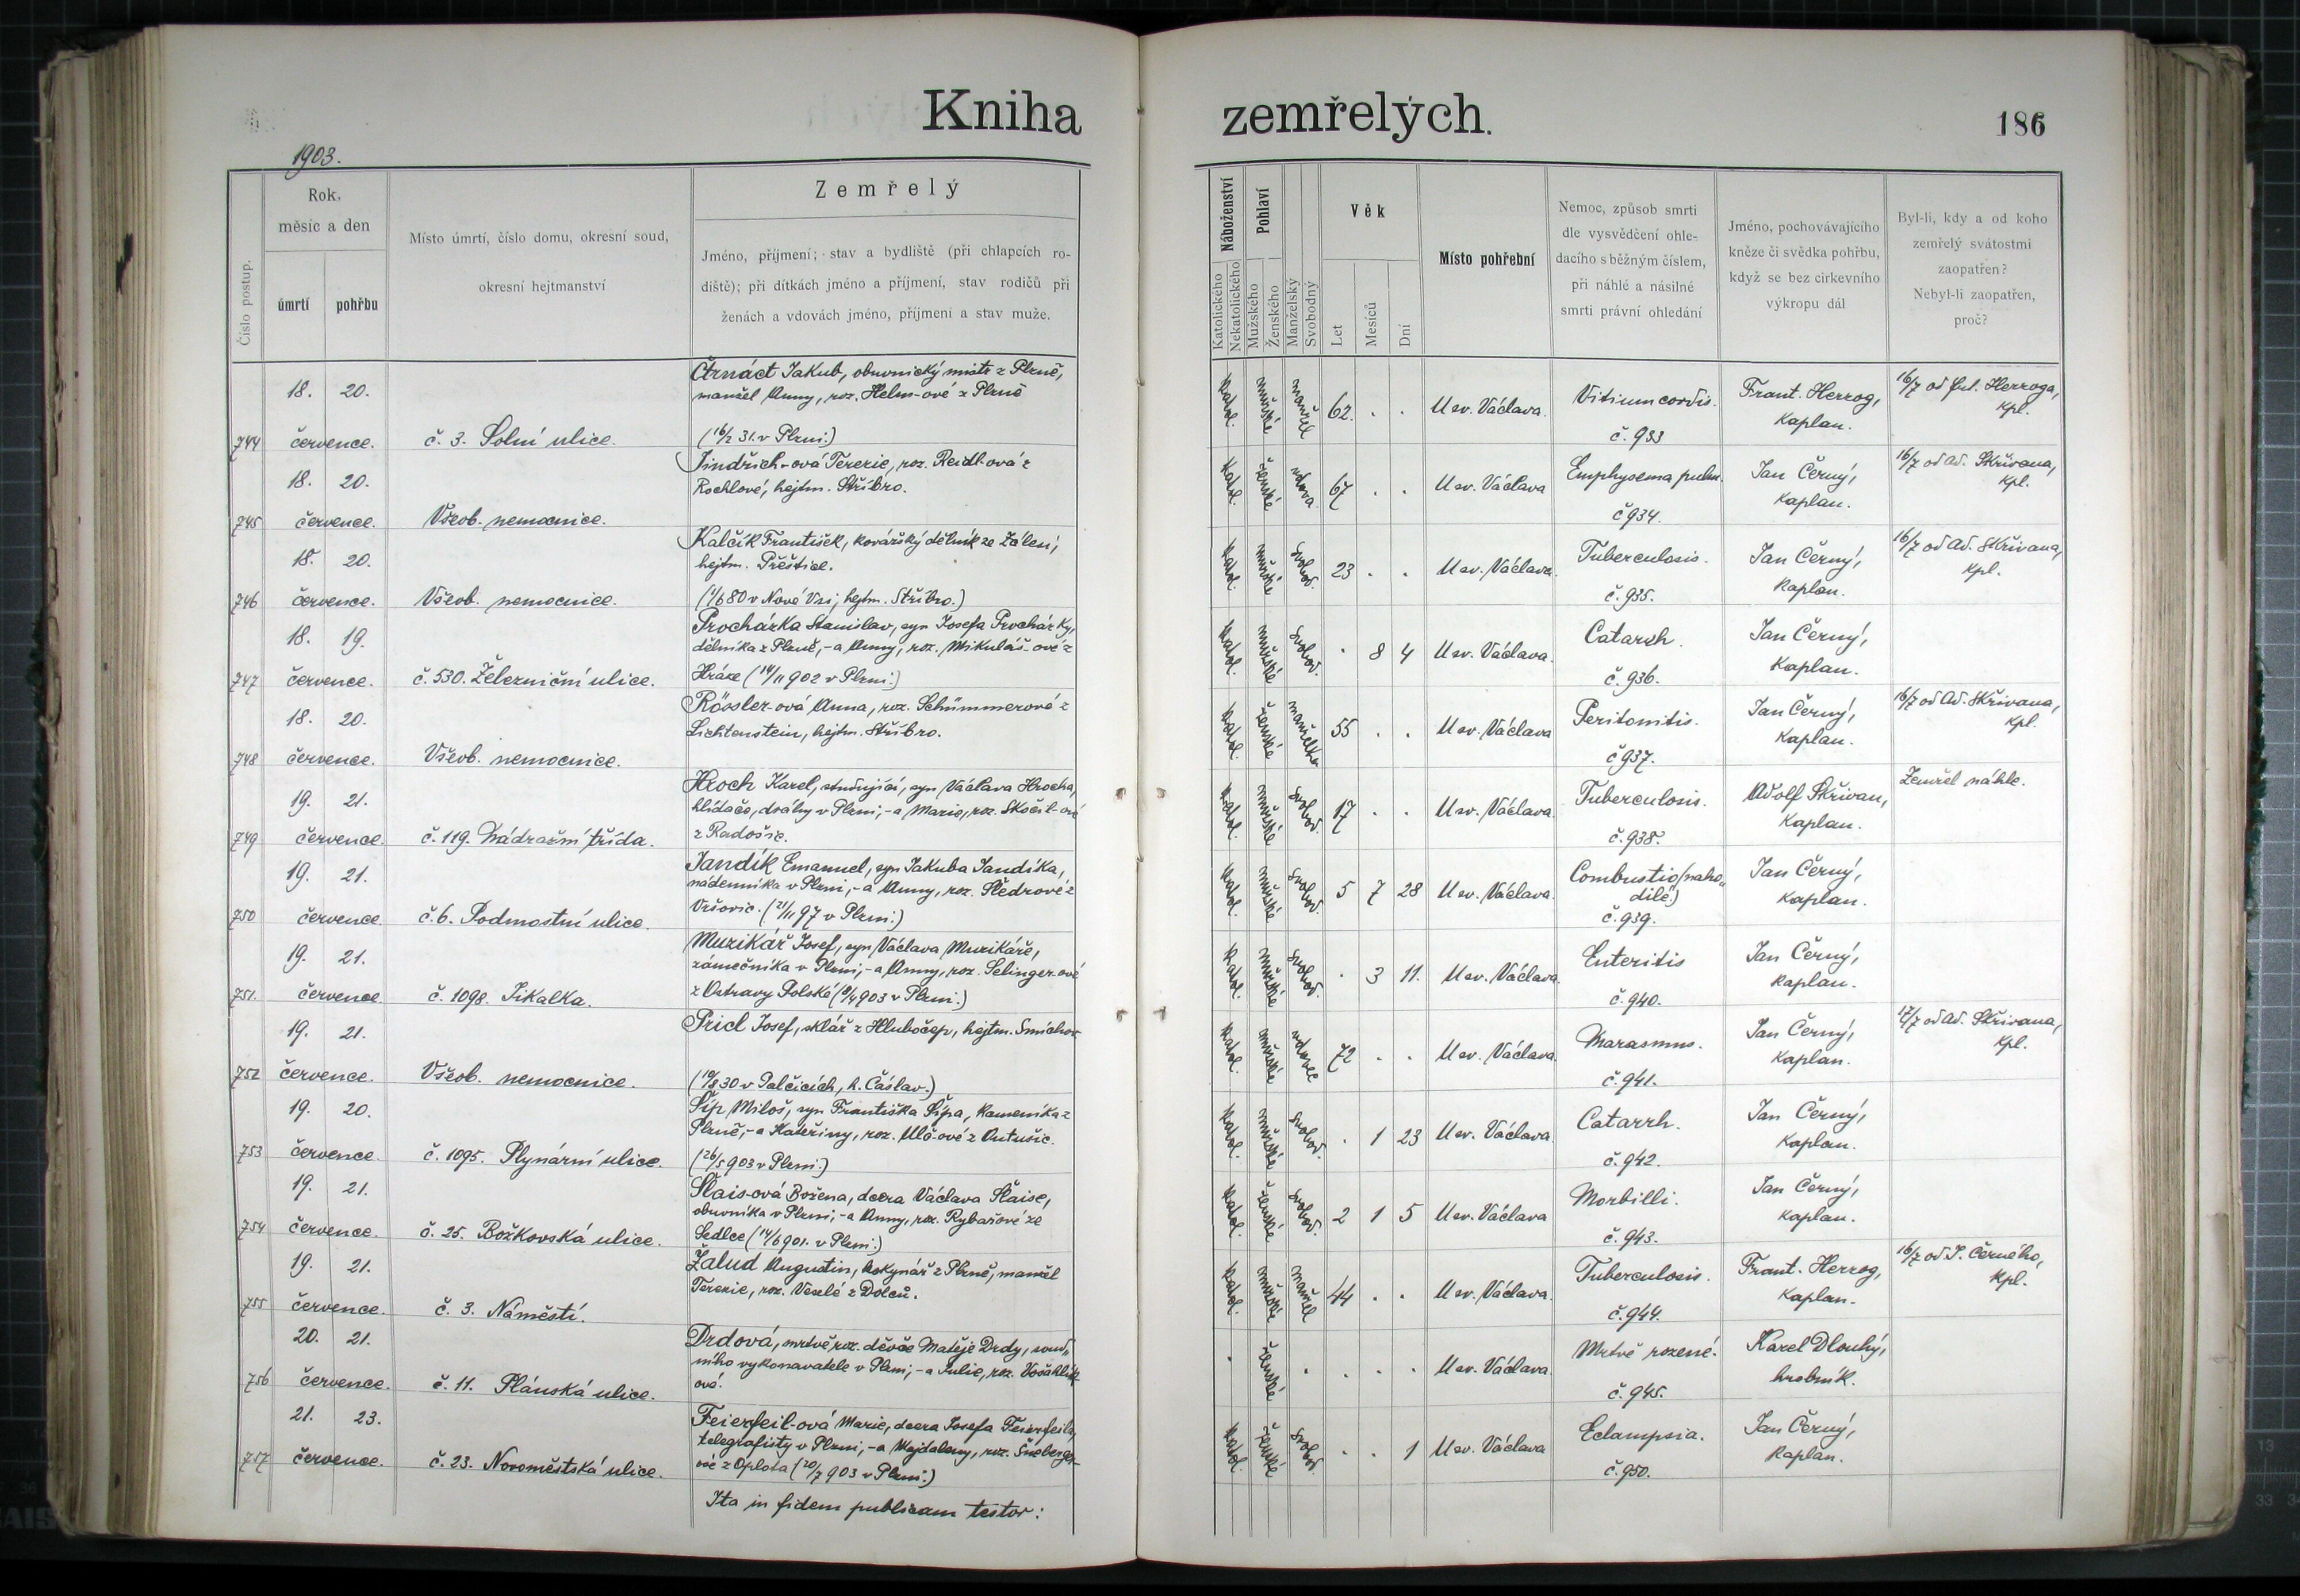 Kniha zemřelých.
186
1903.
Číslo postup.
Rok, měsíc a den
úmrtí
pohřbu
Místo úmrtí, číslo domu, okresní soud,
okresní hejtmanství
Zemřelý
Jméno, příjmení; stav a bydliště (při chlapcích ro-
diště); při dítkách jméno a příjmení, stav rodičů při
ženách a vdovách jméno, příjmení a stav muže.
Náboženství
Katolického
Nekatolického
Pohlaví
Mužského
Ženského
Manželský
Svobodný
Věk
Let
Měsíců
Dní
Místo pohřební
Nemoc, způsob smrti
dle vysvědčení ohle-
dacího s běžným číslem,
při náhlé a násilné
smrti právní ohledání
Jméno, pochovávajícího
kněze či svědka pohřbu,
když se bez církevního
výkropu dál
Byl-li, kdy a od koho
zemřelý svátostmi
zaopatřen?
Nebyl-li zaopatřen,
proč?
744 18. 20. července. č. 3. Solní ulice.
Čtrnáct Jakub, obuvnický mistr z Plzně,
manžel Anny, roz. Helm-ové z Plzně
(16/2 31. v Plzni.)
katol. mužské manžel 62 . . U sv. Václava. Vitium cordis. č. 933 Frant. Herzog, kaplan. 16/7 od Frt. Herzoga, kpl.
745 18. 20. července. Všeob. nemocnice.
Jindřich-ová Terezie, roz. Reidl-ová z
Rochlové, hejtm. Stříbro.
katol. ženské vdova 67 . . U sv. Václava Emphysema pulm. č 934. Jan Černý, kaplan. 16/7 od Ad. Skřivana, kpl.
746 18. 20. července. Všeob. nemocnice.
Kalčík František, kovářský dělník ze Zálesí,
hejtm. Přeštice.
(1/6 80 v Nové Vsi, hejtm. Stříbro.)
katol. mužské svobod. 23 . . U sv. Václava. Tuberculosis. č. 935. Jan Černý, kaplan. 16/7 od Ad. Skřivana, kpl.
747 18. 19. července. č. 530. Železniční ulice.
Procházka Stanislav, syn Josefa Procházky,
dělníka z Plzně, - a Anny, roz. Mikuláš-ové z
Hráze (14/11 902 v Plzni.)
katol. mužské svobod. . 8 4 U sv. Václava. Catarrh. č. 936. Jan Černý, kaplan.
748 18. 20. července. Všeob. nemocnice.
Rössler-ová Anna, roz. Schümmerové z
Lichtenstein, hejtm. Stříbro.
katol. ženské manželka 55 . . U sv. Václava Peritonitis. č 937. Jan Černý, kaplan. 16/7 od Ad. Skřivana, kpl.
749 19. 21. července. č. 119. Nádražní třída.
Hroch Karel, studující, syn Václava Hrocha,
hlídače, dráhy v Plzni, - a Marie, roz. Skočil-ové
z Radošic.
katol. mužské svobod. 17 . . U sv. Václava. Tuberculosis. č. 938. Adolf Skřivan, kaplan. Zemřel náhle.
750 19. 21. července. č. 6. Podmostní ulice.
Jandík Emanuel, syn Jakuba Jandíka,
nádenníka v Plzni, - a Anny, roz. Šledrové z
Vršovic. (21/11 97 v Plzni.)
katol. mužské svobod. 5 7 28 U sv. Václava. Combustio (naho„ dilé.) č. 939. Jan Černý, kaplan.
751. 19. 21. července č. 1098. Jikalka.
Muzikář Josef, syn Václava Muzikáře,
zámečníka v Plzni, - a Anny, roz. Selinger-ové
z Ostravy Polské (8/4 903 v Plzni.)
katol. mužské svobod. . 3 11. U sv. Václava. Enteritis č. 940. Jan Černý, kaplan.
752 19. 21. července. Všeob. nemocnice.
Pricl Josef, sklář z Hlubočep, hejtm. Smíchov
(19/8 30 v Palčicích, h. Čáslav.)
katol. mužské vdovec 72 . . U sv. Václava. Marasmus. č. 941. Jan Černý, kaplan. 17/7 od Ad. Skřivana, kpl.
753 19. 20. července č. 1095. Plynární ulice.
Šíp Miloš, syn Františka Šípa, kameníka z
Plzně, - a Kateřiny, roz. Ulč-ové z Outušic.
(26/5 903 v Plzni.)
katol. mužské svobod. . 1 23 U sv. Václava. Catarrh. č. 942. Jan Černý, kaplan.
754 19. 21. července. č. 25. Božkovská ulice.
Šlais-ová Božena, dcera Václava Šlaise,
obuvníka v Plzni, - a Anny, roz. Rybařové ze
Sedlce (14/6 901. v Plzni.)
katol. ženské svobod. 2 1 5 U sv. Václava Morbilli. č. 943. Jan Černý, kaplan.
755 19. 21. července. č. 3. Náměstí.
Žalud Augustin, hokynář z Plzně, manžel
Terezie, roz. Veselé z Dolců.
katol. mužské manžel 44 . . U sv. Václava. Tuberculosis. č. 944. Frant. Herzog, kaplan. 16/7 od J. Černého, kpl.
756 20. 21. července. č. 11. Plánská ulice.
Drdová, mrtvě roz. děvče Matěje Drdy, soud„
ního vykonavatele v Plzni, - a Julie, roz. Vošahlík-
ové.
. ženské . . . . U sv. Václava. Mrtvě rozené. č. 945. Karel Dlouhý, hrobník.
757 21. 23. července. č. 23. Novoměstská ulice.
Feierfeil-ová Marie, dcera Josefa Feierfeila,
telegrafisty v Plzni, - a Majdaleny, roz. Šneberger-
ové z Oplota (20/7 903 v Plzni.)
katol. ženské svobod. . . 1 U sv. Václava Eclampsia. č. 950. Jan Černý, kaplan.
Ita in fidem publicam testor: